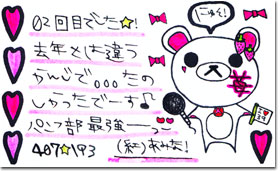 02回目でした☆!
去年とは違う
かんじで。。。たの
しかったでーす♪
パンフ部最強ーっ
407☆193
(紅)あみた!
にゅ〜!